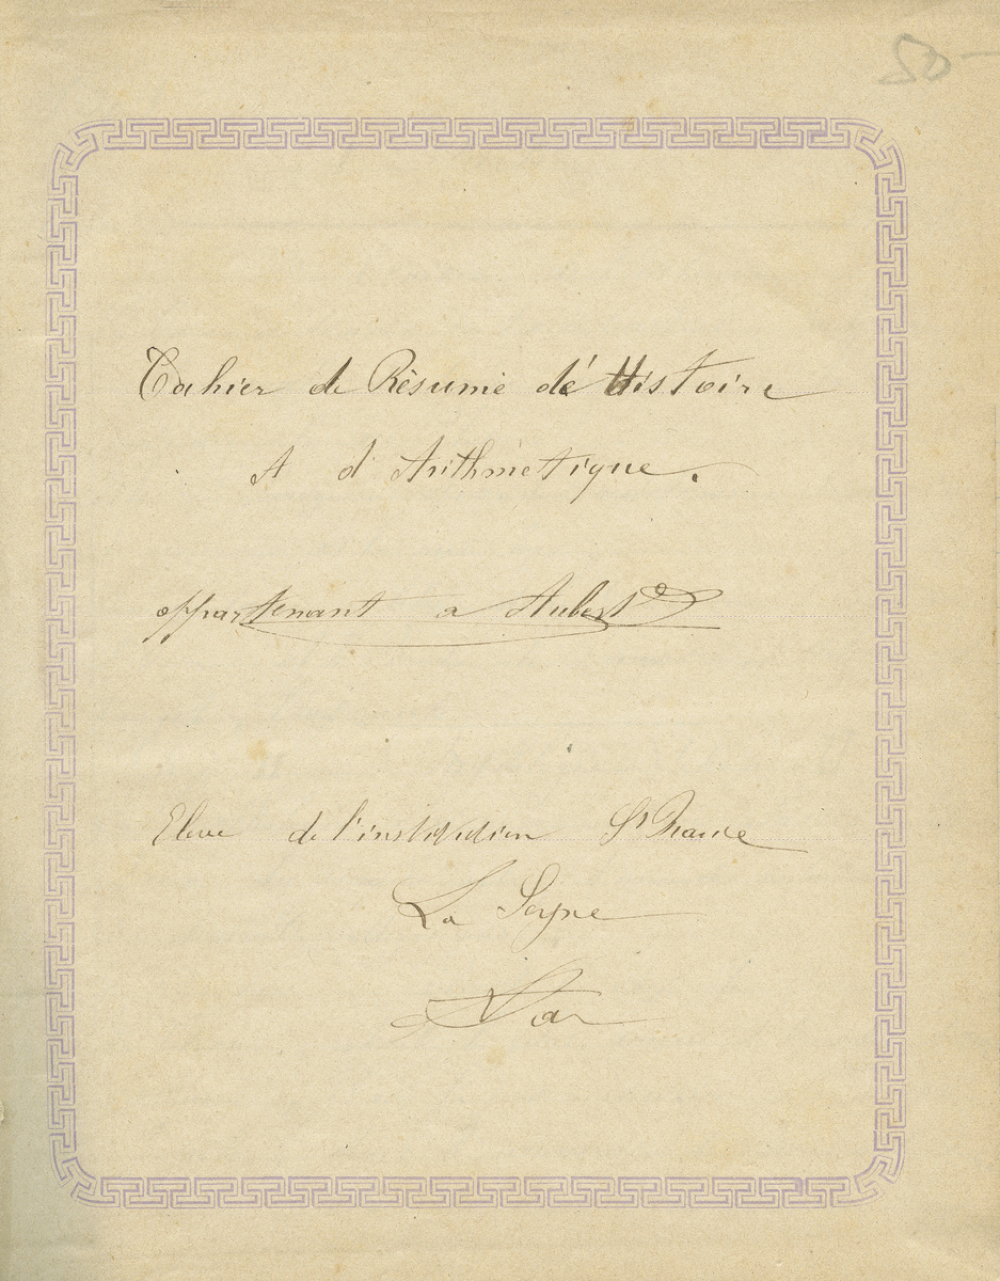 50-
Cahier de Résumé dé Histoire
A d'Arithmétique.
appartenant a Aubert
Eleve de l'institution St Marie
La Seyne
Var